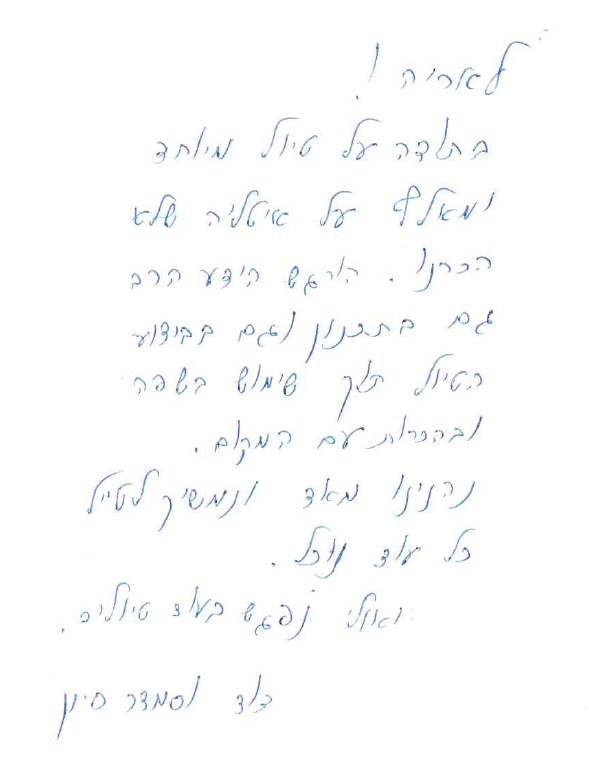 לאריה !
בתודה על טיול מיוחד
ומאלף על איטליה שלא
הכרנו . הורגש הידע הרב
גם בתכנון וגם בביצוע
הטיול תוך שימוש בשפה
ובהכרות עם המקום .
נהנינו מאוד ונמשיך לטייל
כל עוד נוכל .
ואולי נפגש בעוד טיולים .
דוד וסמדר סיון